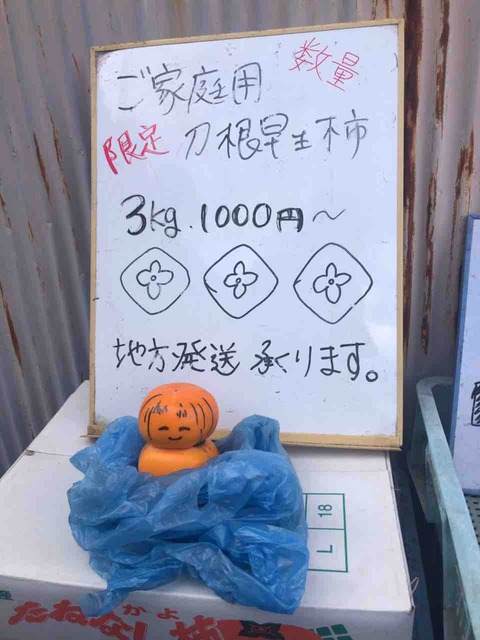 数量
ご家庭用
限定 刀根早生柿
3kg. 1000円〜
地方発送 承くります。
18
L
かよ
たねなし柿